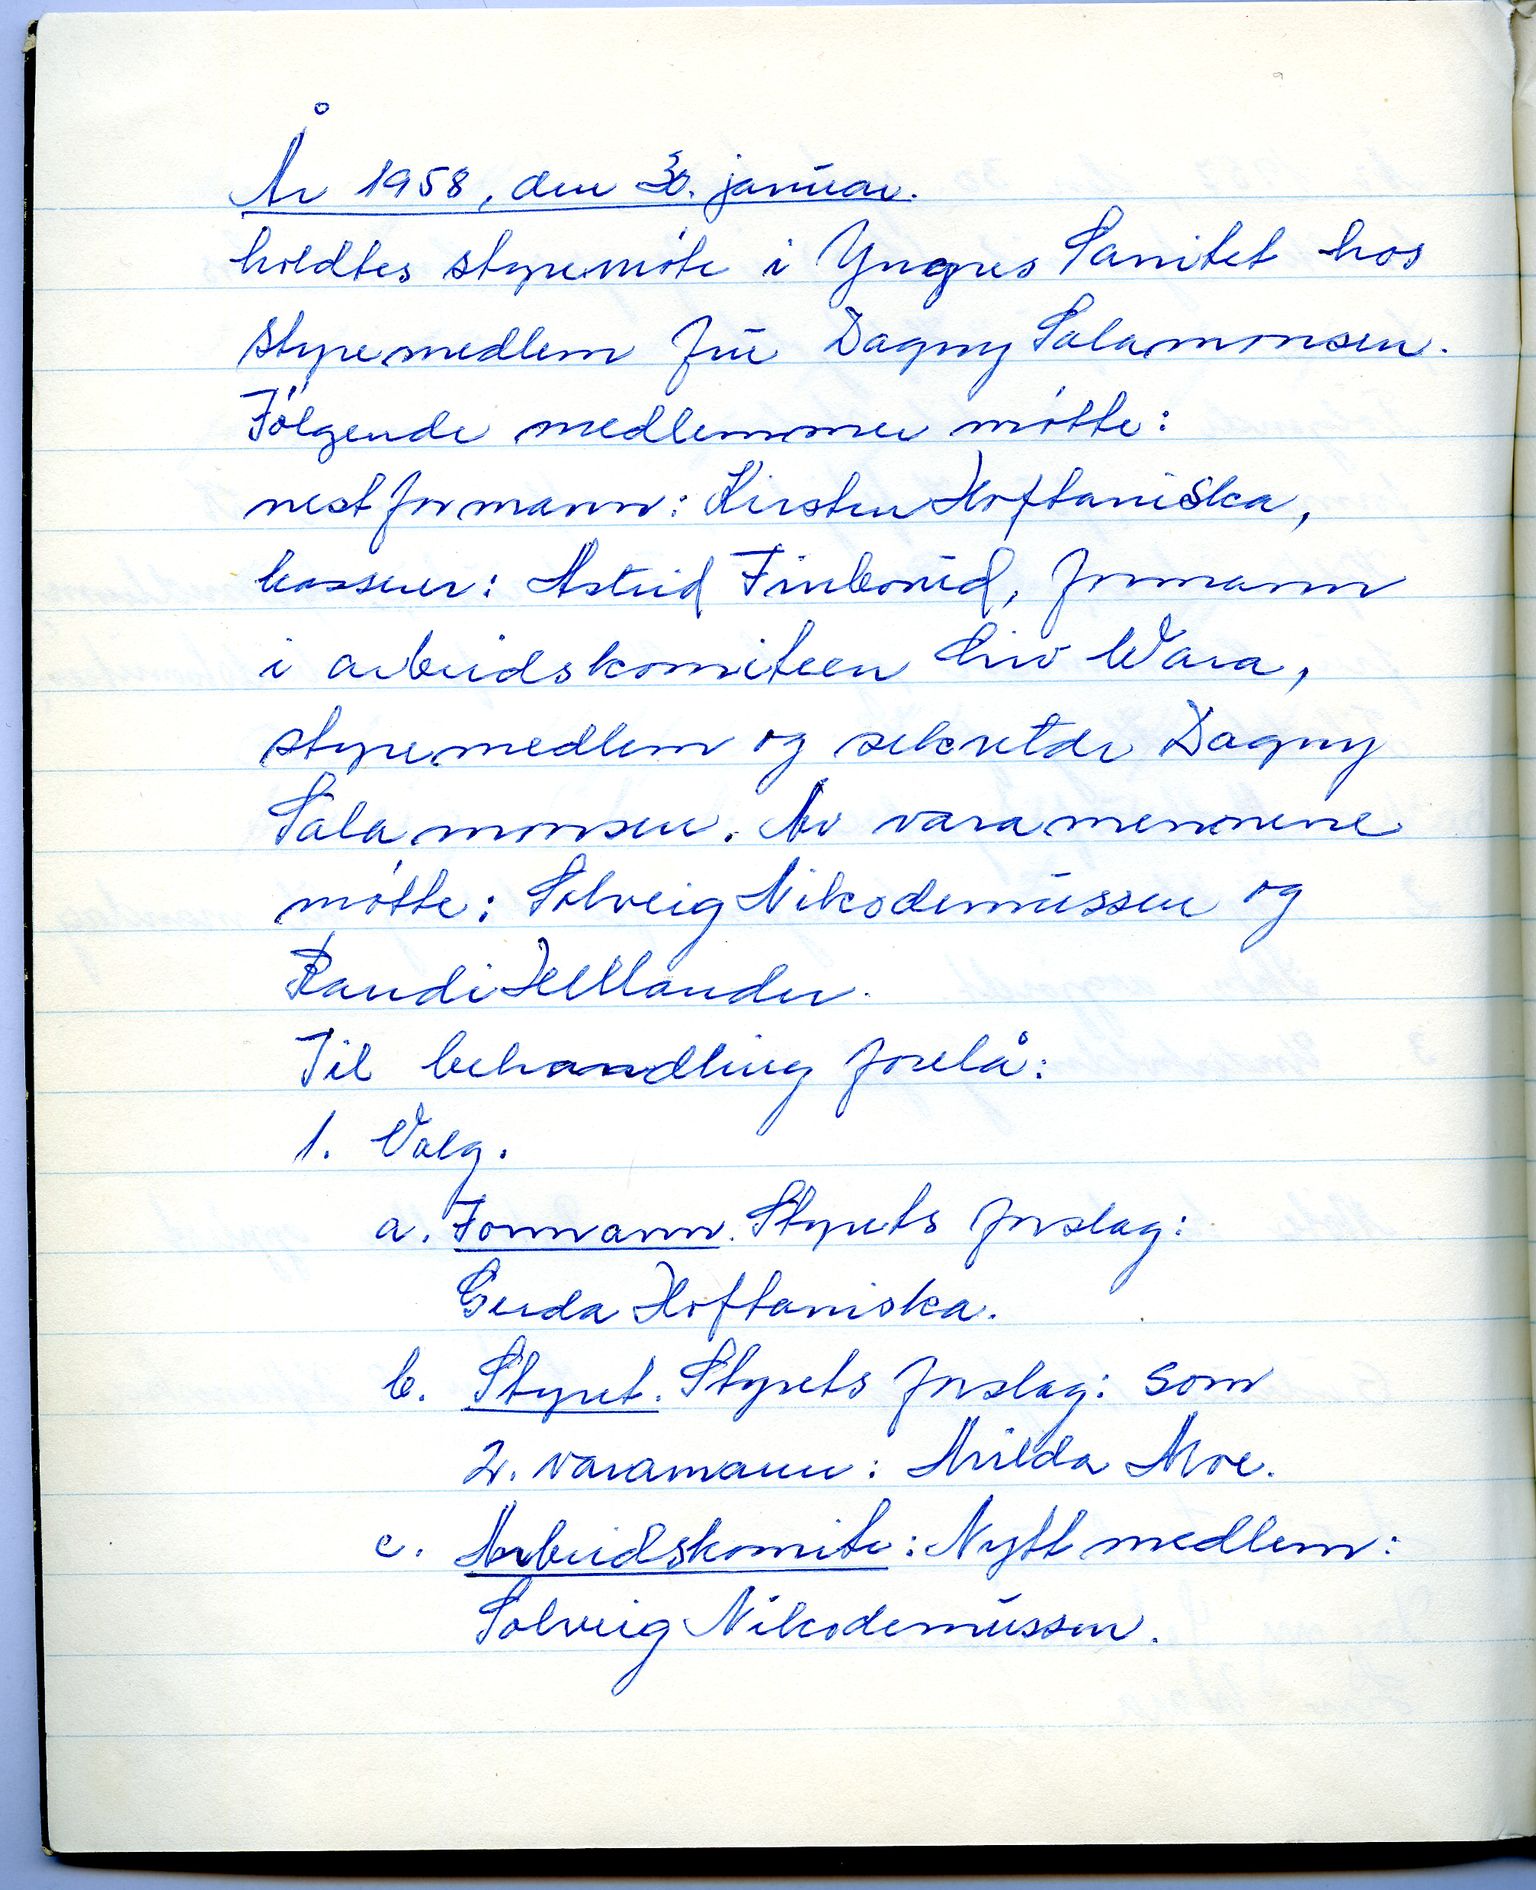 År 1958, den 30. januar.
holdtes styremöte i Yngres Sanitet hos
styremedlem fru Dagny Salamonsen.
Følgende medlemmer møtte:
nestformann: Kirsten Hoftaniska,
kasserer: Astrid Finborud, formann
i arbeidskomiteen Liv Wara,
styremedlem og sekretær Dagny
Salamonsen. Av varamennene
møtte: Solveig Nikodemussen og
Randi Hellander.
Til behandling forelå:
1. Valg.
a. Formann. Styrets forslag:
Gerda Hoftaniska.
b. Styret. Styrets forslag: som
2. varamann: Milda Moe.
c. Arbeidskomite: Nytt medlem:
Solveig Nikodemussen.